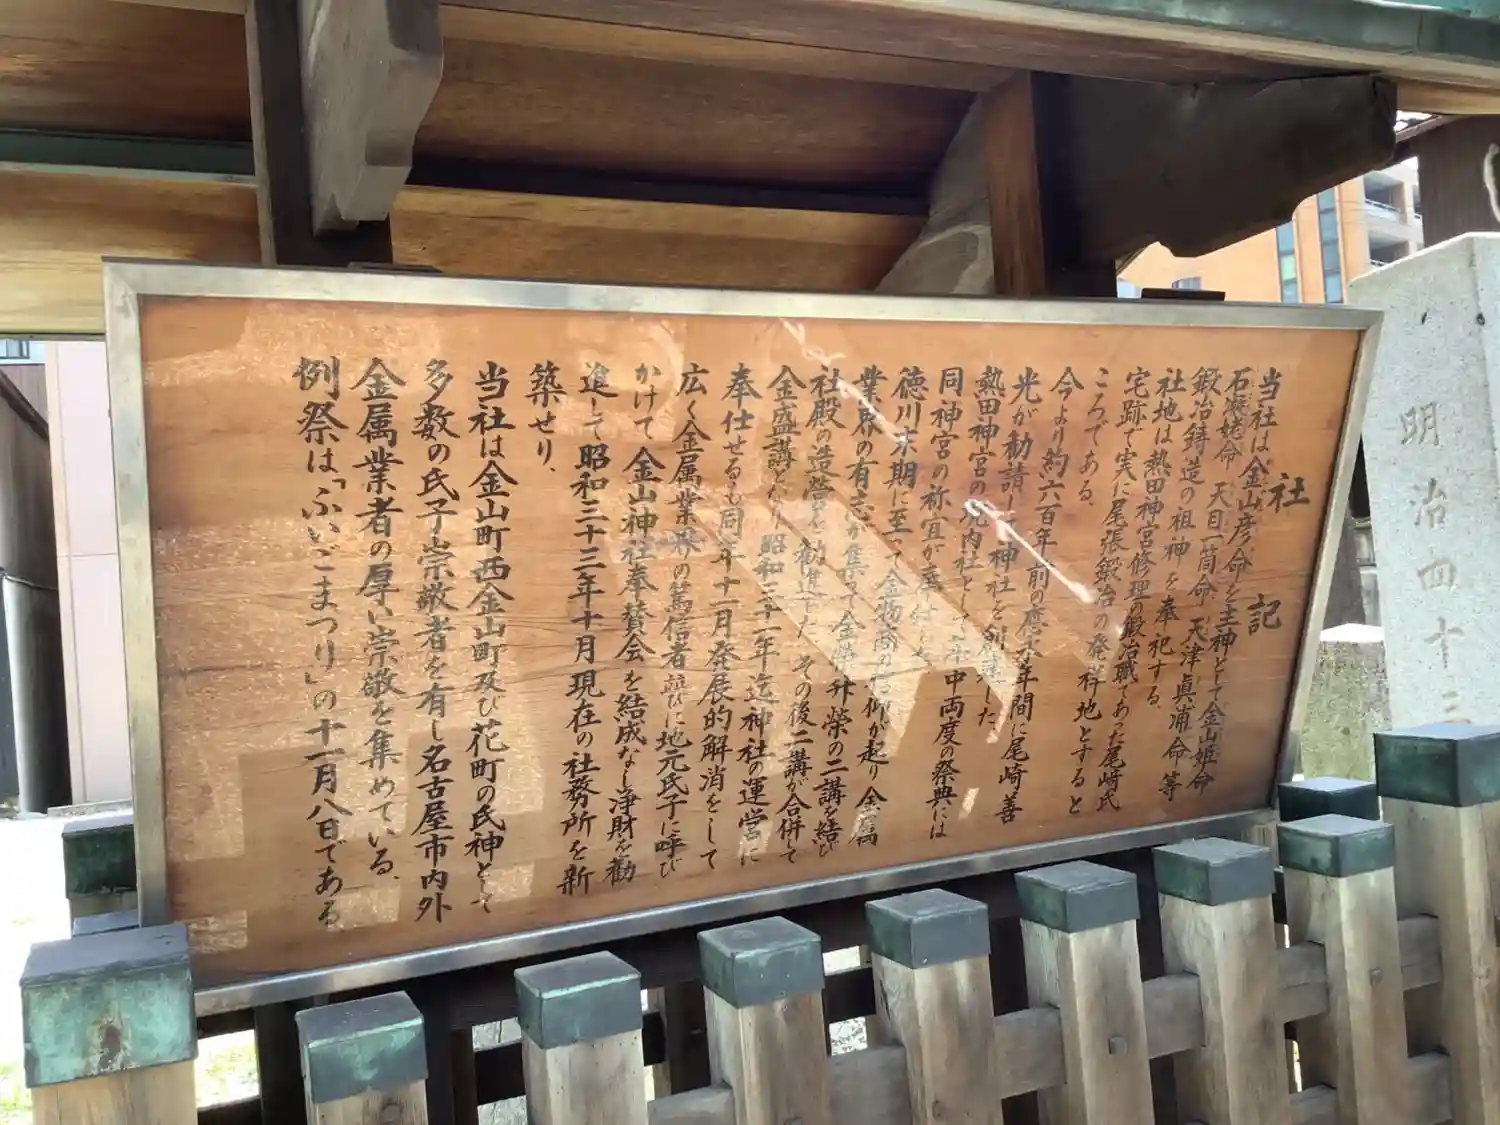 社記
当社は金山彦命を主神として金山姫命
石凝姥命 天目一箇命 天津眞浦命等
鍛冶鋳造の祖神を奉祀する
社地は熱田神宮修理の鍛冶職であった尾﨑氏
宅跡で実に尾張鍛冶の発祥地とすると
ころである。
今より約六百年前の應永年間に尾崎善
光が勧請し神社を創建した
熱田神宮の境内社として年中両度の祭典には
同神宮の祢宜が奉仕した
徳川末期に至って金物商の信仰が起り金属
業界の有志が集って金栄の二講を結び
社殿の造営を勧進した その後二講が合併して
金盛講となり昭和二十一年迄神社の運営に
奉仕せるも同年十一月発展的解消をして
広く金属業界の篤信者並びに地元氏子に呼び
かけて金山神社奉賛会を結成なし浄財を勧
進して昭和三十三年十月現在の社務所を新
築せり、
当社は金山町西金山町及び花町の氏神として
多数の氏子崇敬者を有し名古屋市内外
金属業者の厚い崇敬を集めている、
例祭は「ふいごまつり」の十一月八日である
明治四十三